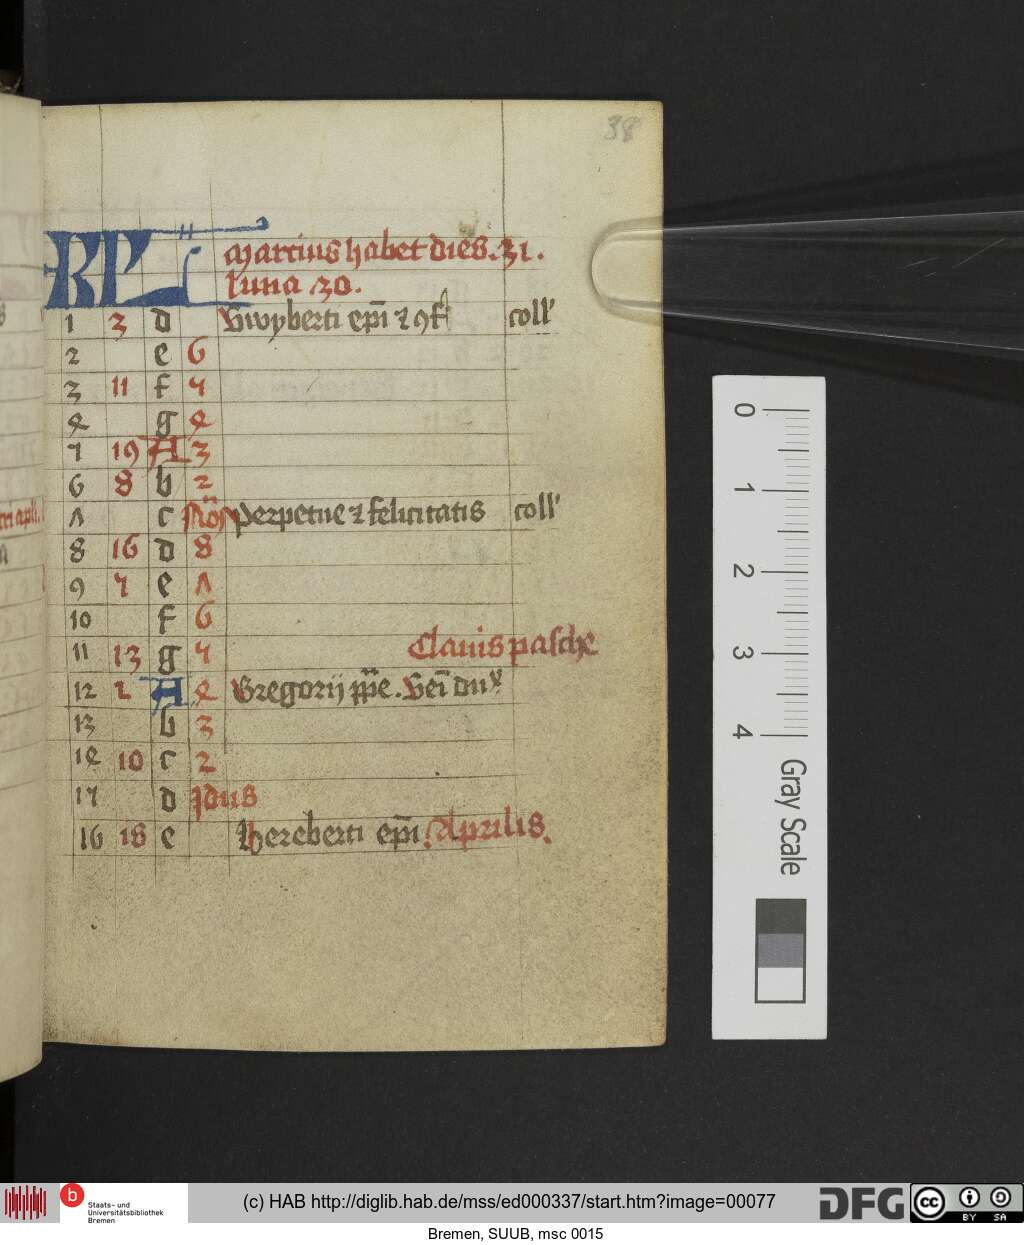 38
KL Marcius habet dies. 31.
luna .30.
1 3 d Swyberti ep̄i ⁊ ꝯf coll'
2 e 6
3 11 f 5
4 g 4
5 19 A 3
6 8 b 2
7 c Nōs Perpetue ⁊ felicitatis coll'
8 16 d 8
9 5 e 7
10 f 6
11 13 g 5 Clauis pasche
12 2 A 4 Gregorij pp̄e. Sei
13 b 3
14 10 c 2
15 d Idus
16 18 e Hereberti ep̄i Aprilis.
0
1
2
3
4
Gray Scale
b Staats- und
Universitätsbibliothek
Bremen
(c) HAB http://diglib.hab.de/mss/ed000337/start.htm?image=00077
DFG
cc BY SA
Bremen, SUUB, msc 0015